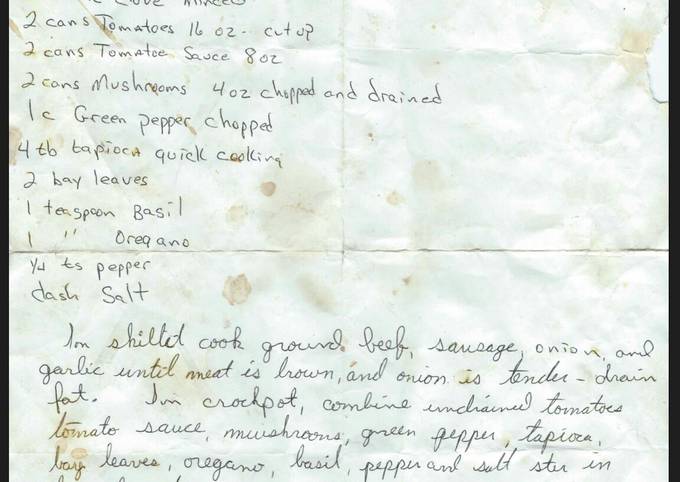 2 cans Tomatoes 16 oz - cut up
2 cans Tomatoe Sauce 8 oz
2 cans Mushrooms 4 oz chopped and drained
1 c Green pepper chopped
4 tb tapioca quick cooking
2 bay leaves
1 teaspoon Basil
1 " Oregano
1/4 ts pepper
dash Salt
In skilltd cook ground beef, sausage, onion, and
garlic until meat is brown, and onion is tender - drain
fat. In crockpot, combine undrained tomatoes
tomato sauce, muishrooms, green pepper, tapioca,
bay leaves, oregano, basil, pepper and salt stir in